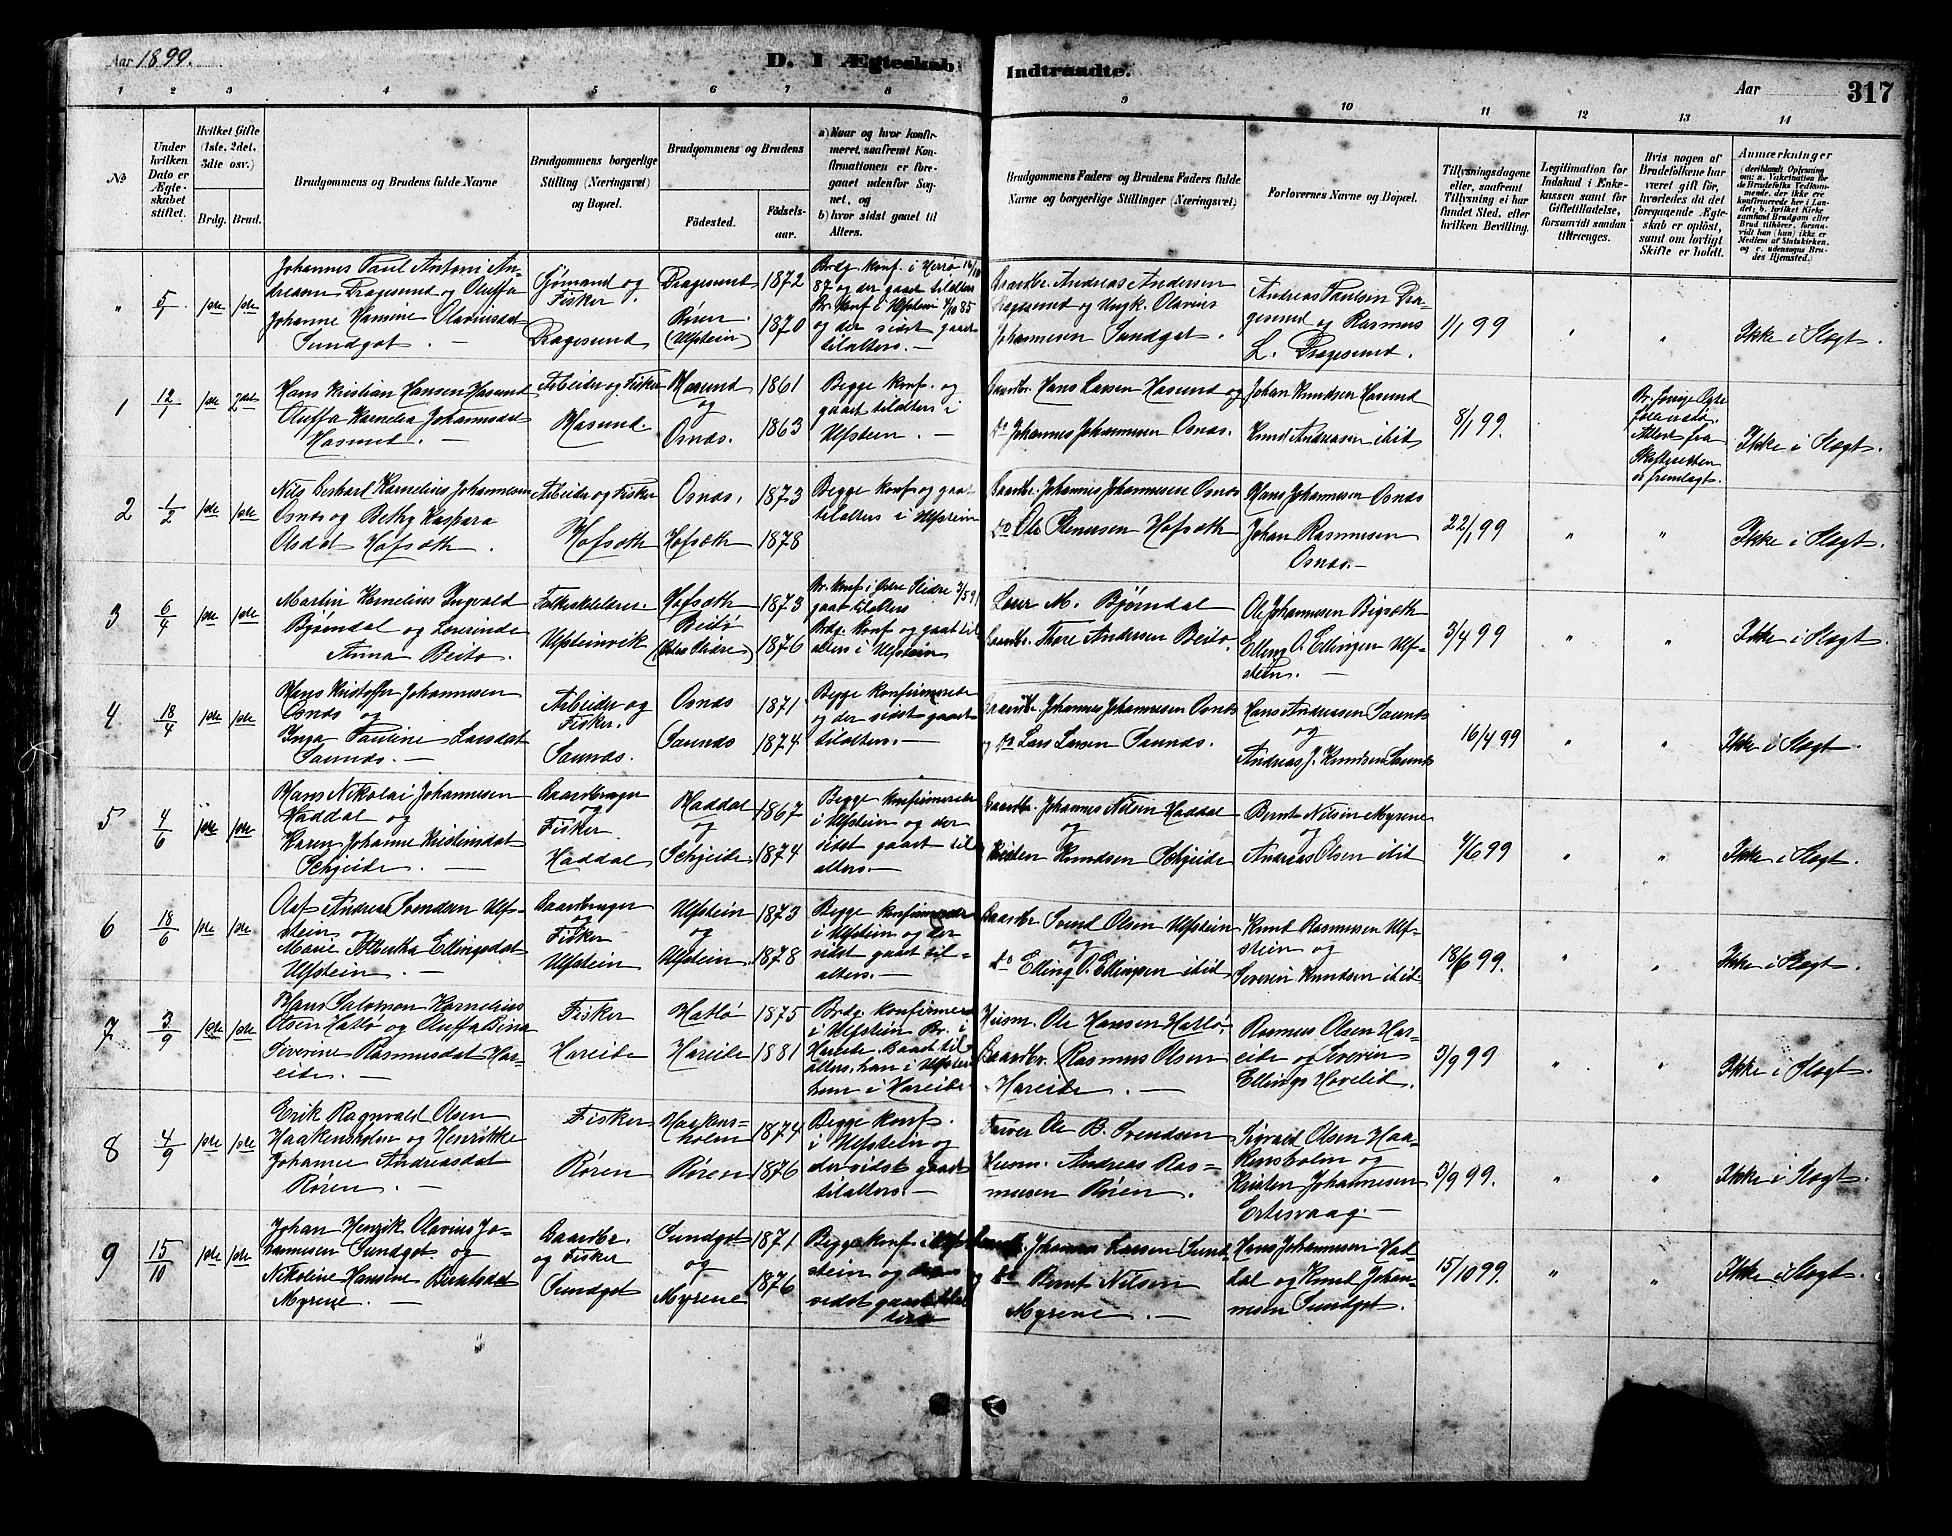 Aar 1899.
D. I Ægteskab
Indtraadte.
Aar
317
1 2 3 4 5 6 7 8
9 10 11 12 13 14
No
Under hvilken Dato er Ægteskabet stiftet.
Hvilket Gifte (1ste, 2det, 3die osv.)
Brdg. Brud.
Brudgommens og Brudens fulde Navne
Brudgommens borgerlige Stilling (Næringsvei) og Bopæl.
Brudgommens og Brudens
Fødested.
Fødsels-aar.
a) Naar og hvor konfirmeret, saafremt Konfirmationen er foregaaet udenfor Sognet, og
b) hvor sidst gaaet til Alters.
Brudgommens Faders og Brudens Faders fulde Navne og borgerlige Stillinger (Næringsvei)
Forlovernes Navne og Bopæl.
Tillysningsdagene eller, saafremt Tillysning ei har fundet Sted, efter hvilken Bevilling.
Legitimation for Indskud i Enkekassen samt for Giftetilladelse, forsaavidt saadan tiltrænges.
Hvis nogen af Brudefolkene har været gift før, hvorledes da det foregaaende Ægteskab er opløst, samt om lovligt Skifte er holdt.
Anmærkninger
(deriblandt Oplysning om: a. Vakcination for de Brudefolks Vedkommende, der ikke ere konfirmerede her i Landet; b. hvilket Kirkesamfund Brudgom eller Brud tilhører, forsaavidt han (hun) ikke er Medlem af Statskirken, og c. udensogns Brudes Hjemsted.)
" 5/1 1ste 1ste
Johannes Paul Antoni An-
dreasen Dragesund og Oluffa
Johanne Hansine Olavusdat
Sundgot. —
Gjømand og
Fisker.
Dragesund
Dragesund
Røren
(Ulfstein)
1872
1870
Brdg. konf. i Herrø 16/10
87 og der gaaet tilalters
Br. konf. i Ulfstein 4/10 85
og der sidst gaaet
tilalters. —
Gaardbr. Andreas Andersen
Dragesund og Ungk. Olavius
Johannesen Sundgot.
Andreas Paulsen Dra-
gesund og Rasmus
L. Dragesund.
1/1 99
" "
Ikke i Slægt.
1 12/1 1ste 2det
Hans Kristian Hansen Hasund
Oluffa Kornelia Johannesdat
Hasund. —
Arbeider og Fisker
Hasund
Hasund
og
Osnæs.
1861
1863
Begge konf. og
gaaet tilalters i
Ulfstein. —
Gaardbr. Hans Larsen Hasund og
do Johannes Johannesen Osnæs.
Johan Knudsen Hasund
Knud Andreasen itid
8/1 99.
Skifteretten
er fremlagt.
Ikke i Slægt.
2 1/2 1ste 1ste
Nils Gerhart Kornelius Johannesen
Osnæs og Bethy Kaspara
Olsdat Hofsæth.
Arbeider og Fisker
Hofsæth
Osnæs.
Hofsæth
1873
1878
Begge konf. og gaaet
tilalters i Ulfstein
Gaardbr. Johannes Johannesen Osnæs
do Ole Stenesen Hofsæth
Hans Johannesen Osnæs
Johan Rasmussen
Osnæs. —
22/1 99
" "
Ikke i Slægt.
3 6/4 1ste 1ste
Martin Kornelius Ingvald
Bjørndal og Loverinde
Anna Beito.
Folkeskolelærer.
Ulfsteinvik
Hofsæth
Beitø
(Østre Slidre)
1873
1876
Br. konf. i Østre Slidre
gaaet tilalters
Brdg. konf og gaaet til
alters i Ulfstein
Lærer M. Bjørndal
Gaardbr. Thore Andersen Beito.
Ole Johannesen Bigsæth
Elling O. Ellingsen Ulf-
stein. —
3/4 99
" "
Ikke i Slægt.
4 18/4 1ste 1ste
Hans Kristoffer Johannesen
Osnæs og
Inga Pauline Larsdat
Saunæs. —
Arbeider og
Fisker.
Saunæs.
Osnæs
Saunæs
1871
1874.
Begge konfirmerede
og der sidst gaaet
tilalters. —
Gaardbr. Johannes Johannesen Osnæs
og do Lars Larsen Saunæs.
Hans Andreassen Saunæs
og
Andreas J. Knudsen Saunæs
16/4 99
" "
Ikke i Slægt.
5 4/6 1ste 1ste
Hans Nikolai Johannesen
Haddal og
Karen Johanne Kristensdat
Schjeide. —
Gaardbruger
og
Fisker
Haddal
Haddal
og
Schjeide
1867
1874
Begge konfirmerede
i Ulfstein og der
sidst gaaet til
alters. —
Gaardbr. Johannes Nilsen Haddal
og
Kristen Knudsen Schjeide
Bernt Nilsen Myrene
og
Andreas Olsen itid
4/6 99
" "
Ikke i Slægt.
6 18/6 1ste 1ste
Olaf Andreas Svendsen Ulf-
stein og
Marie Alberta Ellingsdat
Ulfstein. —
Gaardbruger
og
Fisker
Ulfstein
Ulfstein
og
Ulfstein.
1873
1878
Begge konfirmerede
i Ulfstein og der
sidst gaaet til-
alters. —
Gaardbr Svend Olsen Ulfstein
og
do Elling O. Ellingsen itid
Knud Rasmussen Ulf-
stein og
Severin Knudsen itid
18/6 99.
" "
Ikke i Slægt.
7 3/9 1ste 1ste
Hans Salomon Kornelius
Olsen Hatlø og Oluffa Bina
Siverine Rasmusdat Har-
eide. —
Fisker
Hareide
Hatlø
Hareide
1875
1881
Brdg. konfirmeret
i Ulfstein Br. i
Hareide. Gaaet til-
alters, han i Ulfstein
hun i Hareide
Husm. Ole Hansen Hatlø,
Gaardbr. Rasmus Olsen
Hareide. —
Rasmus Olsen Har-
eide og Severin
Ellings Hovelid.
3/9 99
" "
Ikke i Slægt.
8 4/9 1ste 1ste
Erik Ragnvald Olsen
Haakensholm og Henrikke
Johanne Andreasdat
Røren. —
Fisker
Røren
Haakens-
holm
Røren
1874
1876
Begge konf.
i Ulfstein og
der sidst gaaet
tilalters. —
Ole B. Svendsen
Husm. Andreas Ras-
mussen Røren.
Sigvald Olsen Haa-
kensholm og
Kristen Johannesen
Ertesvaag. —
3/9 99.
" "
Ikke i Slægt.
9 15/10 1ste 1ste
Johan Henrik Olavius Jo-
hannesen Sundgot og
Nikoline Hansine Berntsdat
Myrene. —
Gaardbr.
og Fisker
Sundgot
Sundgot
og
Myrene
1871
1876
Begge konf. i Ulf-
stein og der
sidst gaaet til al-
ters
Johannes Larsen Sund-
og do Bernt Nilsen
Myrene. —
Hans Johannesen Had-
dal og Knud Johan-
nesen Sundgot.
15/10 99.
" "
Ikke i Slægt.